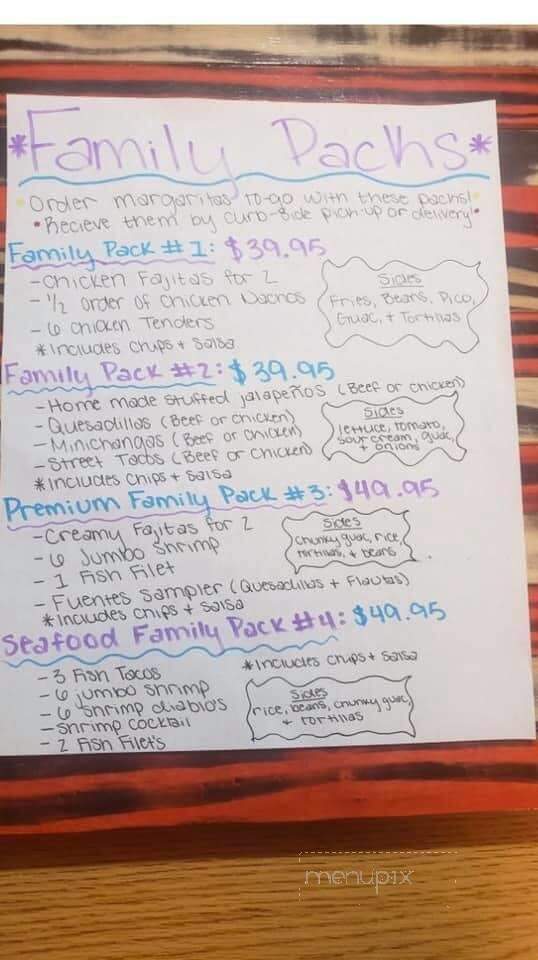 *Family Packs*
• Order margaritas to-go with these packs! •
• Recieve them by curb-side pick-up or delivery! •
Family Pack #1: $39.95
- Chicken Fajitas for 2
- 1/2 order of Chicken Nachos
- 6 Chicken Tenders
*Includes Chips + Salsa
Sides
Fries, Beans, Pico,
Guac, + Tortillas
Family Pack #2: $39.95
- Home made stuffed jalapeños (Beef or chicken)
- Quesadillas (Beef or chicken)
- Minichangas (Beef or chicken)
- Street Tacos (Beef or chicken)
*Includes chips + salsa
Sides
lettuce, tomato,
sour cream, guac,
+ onions
Premium Family Pack #3: $49.95
- Creamy Fajitas for 2
- 6 Jumbo Shrimp
- 1 Fish Filet
- Fuentes Sampler (Quesadillas + Flautas)
*Includes chips + salsa
Sides
chunky guac, rice,
tortillas, + beans
Seafood Family Pack #4: $49.95
- 3 Fish Tacos
- 6 jumbo shrimp
- 6 shrimp diablos
- shrimp cocktail
- 2 Fish Filet's
*Includes chips + salsa
Sides
rice, beans, chunky guac,
+ tortillas
menupix